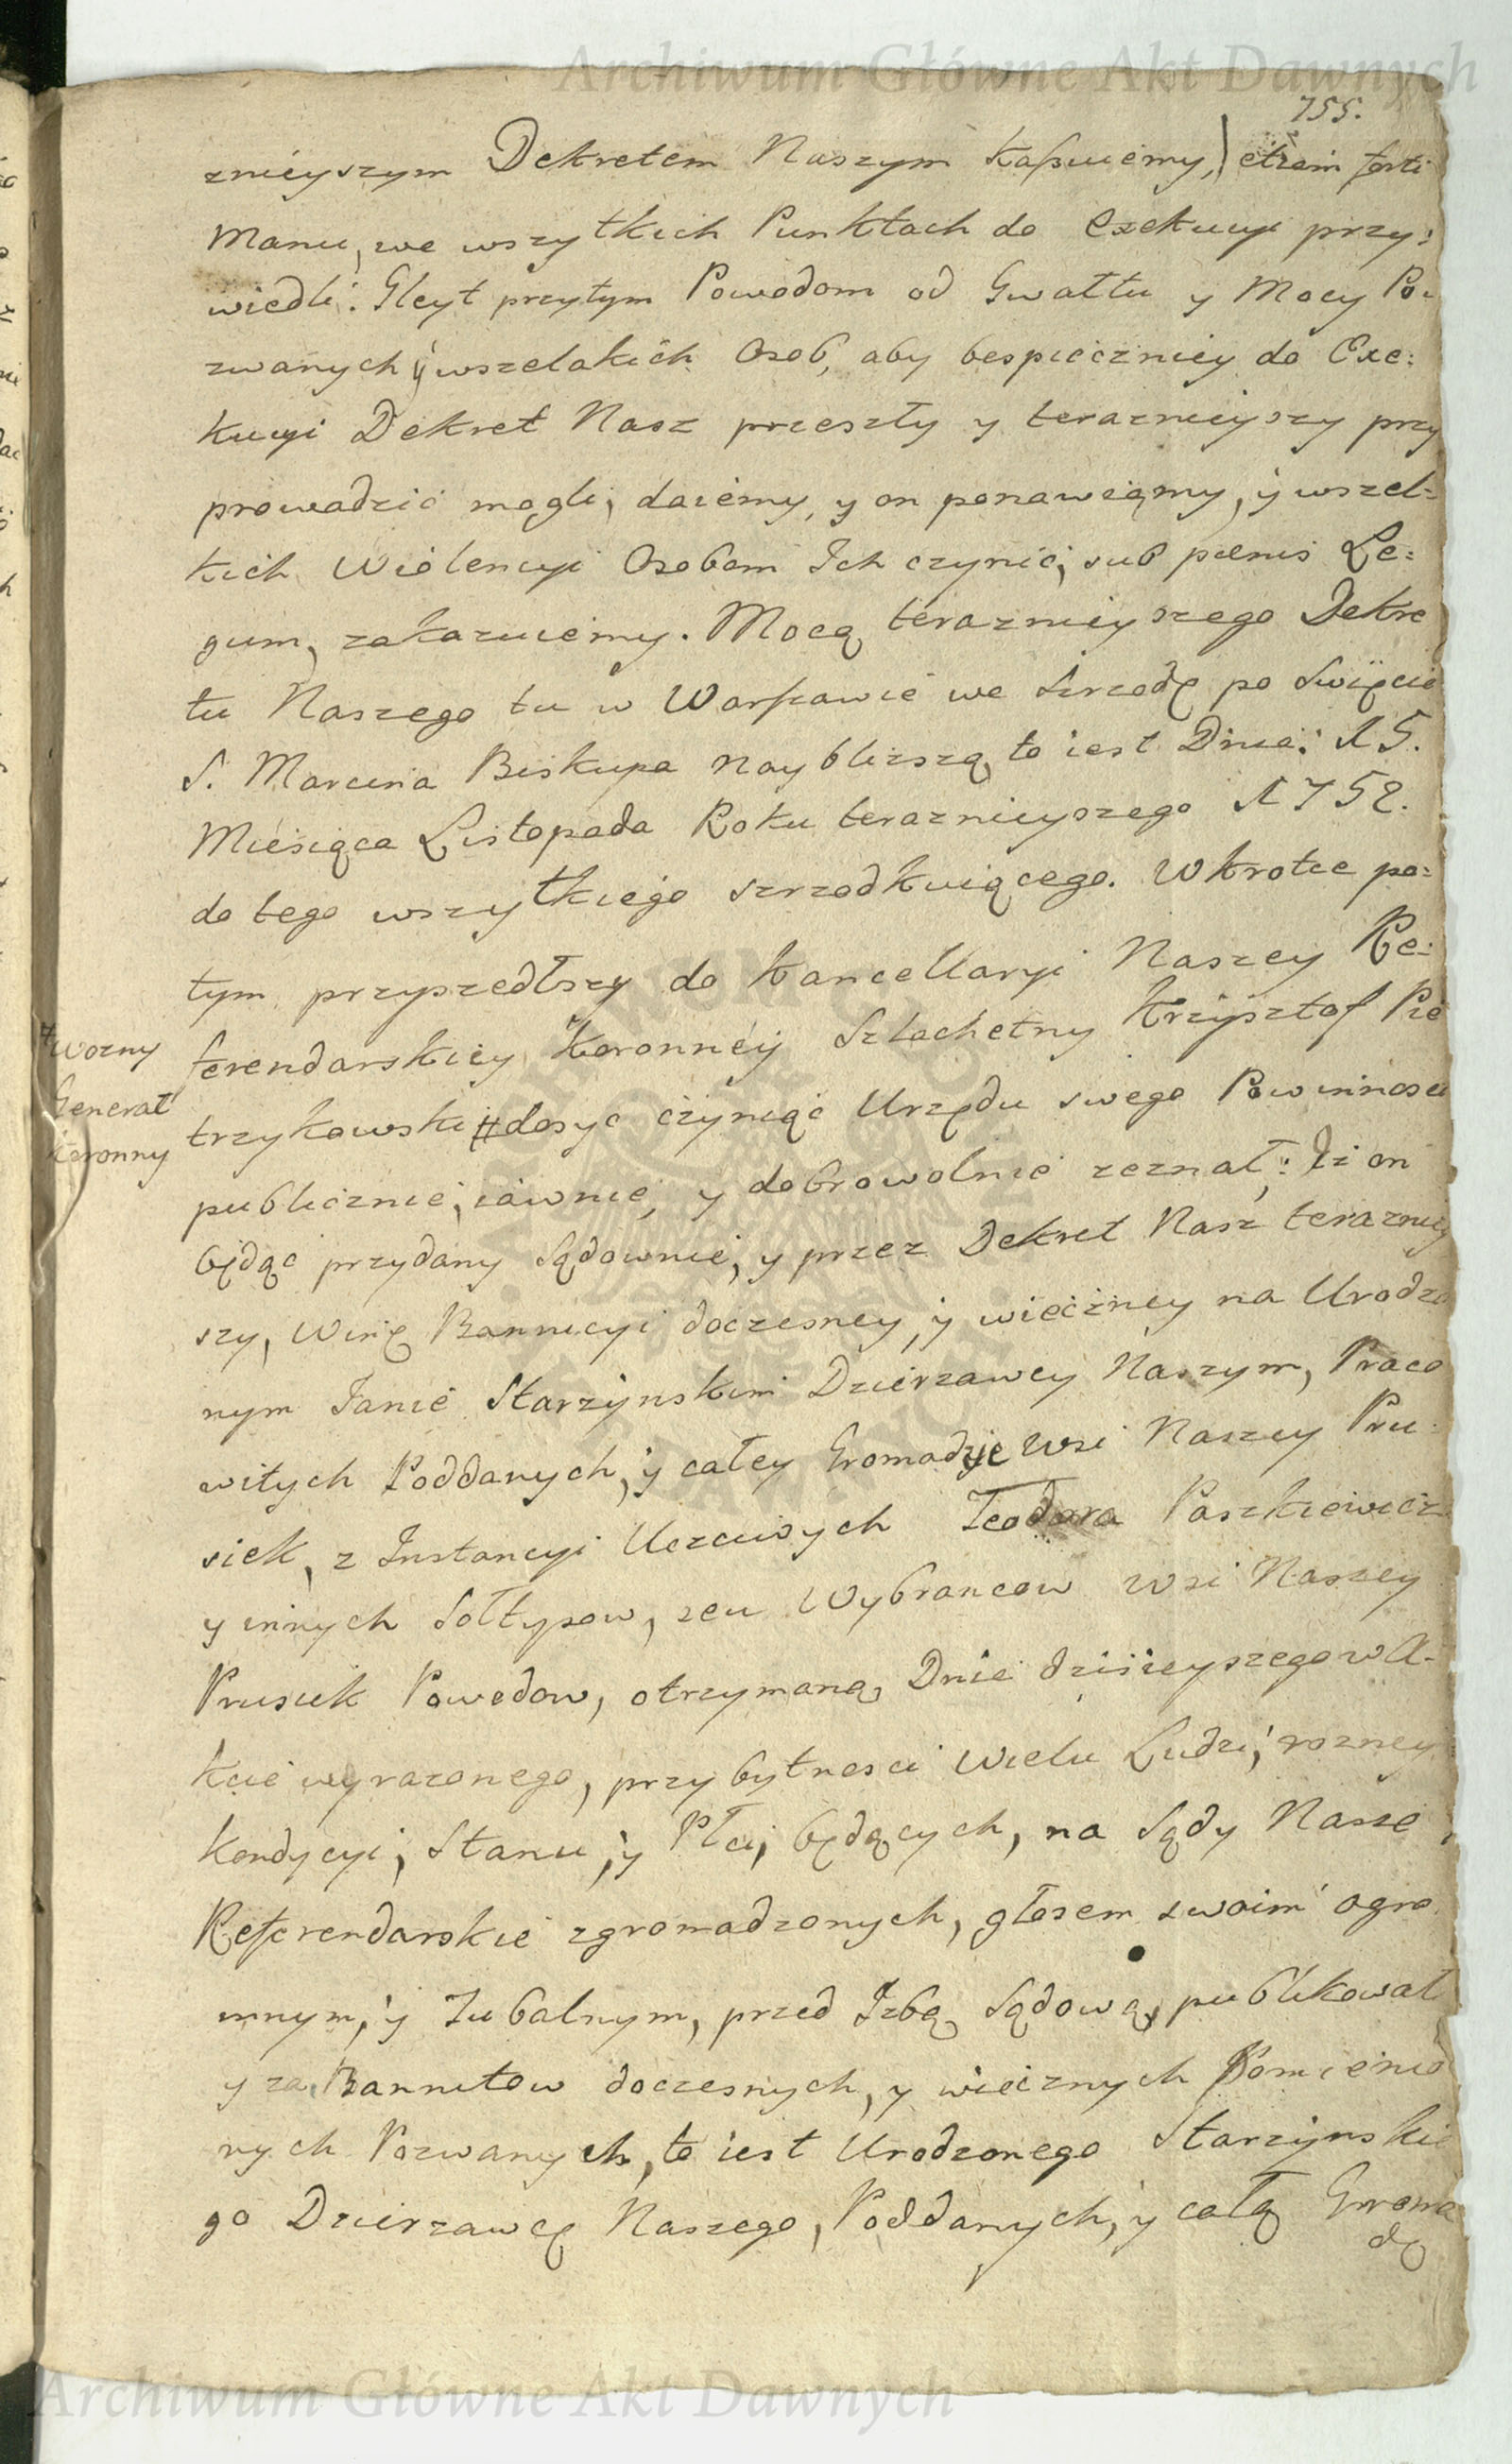 Archiwum Główne Akt Dawnych
755.
znieyszym Dekretem Naszym kassuiemy,) etiam forti
Manu, we wszytkich Punktach do Exekucyi przy:
wiedli. Gleyt przytym Powodom od Gwałtu y Mocy Po:
zwanych y wszelakich Osob, aby bespieczniey do Exe:
kucyi Dekret Nasz przeszły y teraznieyszy przy
prowadzić mogli, daiemy, y on ponawiamy, y wszel:
kich Wiolencyi Osobom Ich czynić, sub pœnis Le:
gum, zakazuiemy. Mocą teraznieyszego Dekre
tu Naszego tu w Warszawie we Szrzodę po Swięcie
S. Marcina Biskupa nayblizszą to iest Dnia: 15.
Miesiąca Listopada Roku teraznieyszego 1752.
do tego wszytkiego szrzodkuiącego. Wkrotce po:
tym przyszedłszy do Kancellaryi Naszey Re:
ferendarskiey Koronney Szlachetny Krzysztof Pie
trzykowski # dosyc czyniąc Urzędu swego Powinnosci
# Wozny
Generał
Koronny
publicznie, iawnie, y dobrowolnie zeznał: Iż on
będąc przydany Sądownie, y przez Dekret Nasz terazniey
szy, Winę Bannicyi doczesney, y wieczney na Urodzo
nym Janie Starzynskim Dzierzawcy Naszym, Praco
witych Poddanych, y całey Gromadzie Wsi Naszey Pru:
siek, z Instancyi Uczciwych Teodora Paszkiewicz
y innych Sołtysow, seu Wybrancow Wsi Naszey
Prusiek Powodow, otrzymaną Dnia dzisieyszego w A-
kcie wyrazonego, przy bytnosci Wielu Ludzi, rozney
Kondycyi, Stanu, y Płci, będących, na Sądy Nasze
Referendarskie zgromadzonych, głosem swoim ogro
mnym, y Tubalnym, przed Izbą Sądową, publikował
y za Bannitow doczesnych, y wiecznych Pomienio
nych Pozwanych, to iest Urodzonego Starzynskie
go Dzierzawcę Naszego, Poddanych, y całą Groma
dę
Archiwum Główne Akt Dawnych